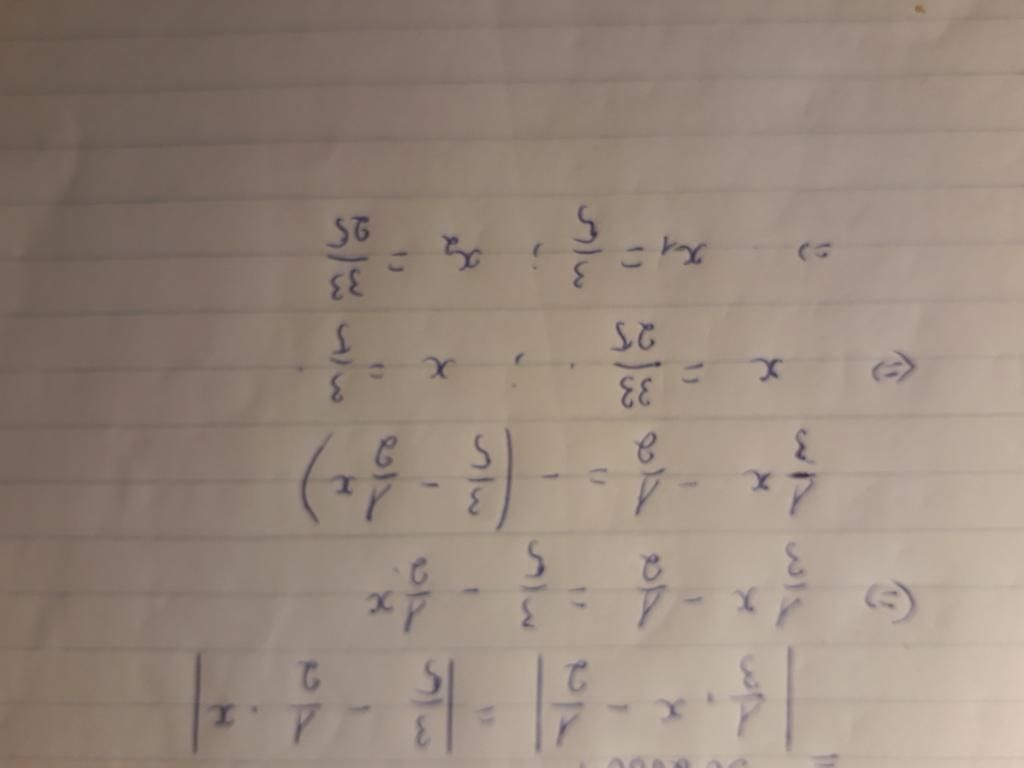 |1/3 · x - 1/2| = |3/5 - 1/2 · x|
(=) 1/3 x - 1/2 = 3/5 - 1/2 x
1/3 x - 1/2 = - (3/5 - 1/2 x)
(=) x = 33/25 . ; x = 3/5 .
=> x1 = 3/5 ; x2 = 33/25